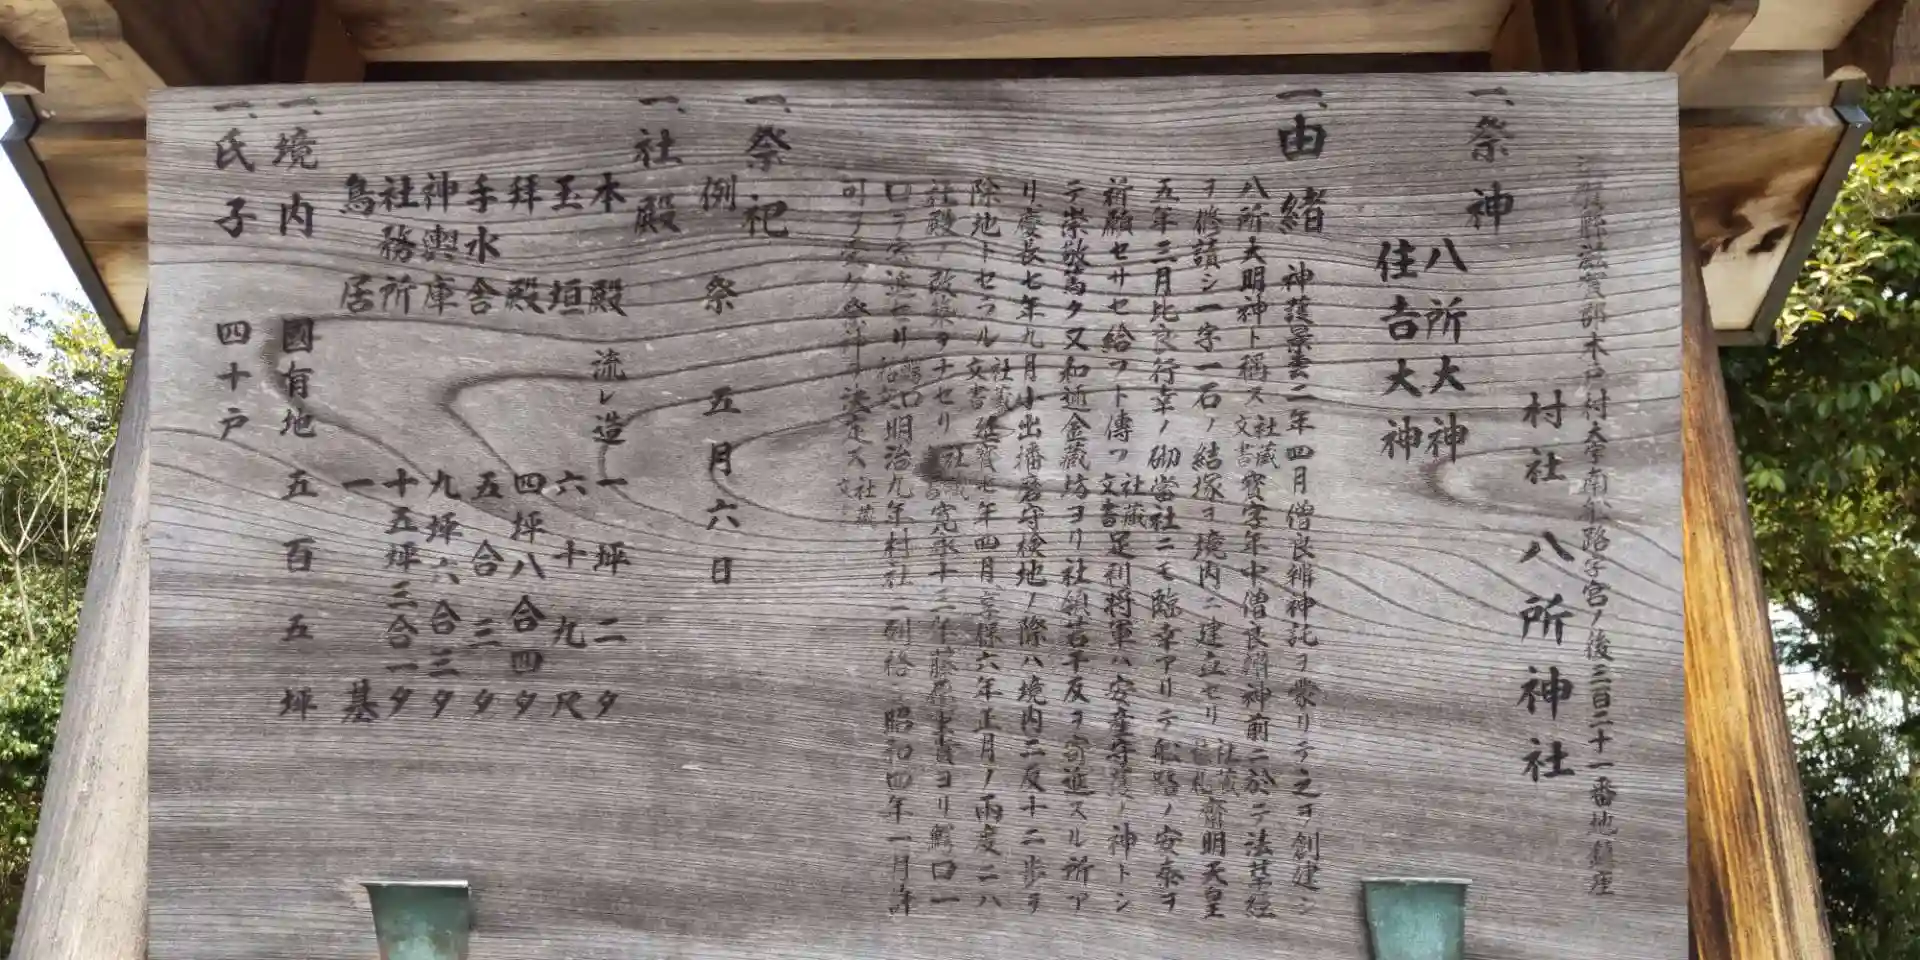 滋賀縣滋賀郡木戸村大字南小字宮ノ後三百二十一番地鎮座
村社 八所神社
一、祭神
八所大神
住吉大神
一、由緒
神護景雲二年四月僧良辨神託ヲ蒙リテ之ヲ創建シ
八所大明神ト稱ス 社藏文書 寶字年中僧良辨神前ニ於テ法華經
ヲ修讀シ一字一石ノ結塚ヲ境内ニ建立セリ 社藏 齋明天皇
五年三月比良行幸ノ砌當社ニモ臨幸アリテ船路ノ安泰ヲ
祈願セサセ給フト傳フ 社藏文書 足利将軍ハ安産守護ノ神トシ
テ崇敬篤ク又和邇金藏坊ヨリ社領若干反ヲ寄進スル所ア
リ慶長七年九月小出播磨守検地ノ際ハ境内二反十二歩ヲ
除地トセラル 社藏文書 延寶七年四月享保六年正月ノ兩度ニハ
社殿ノ改築ヲナセリ 社藏 寛永十三年藤 ヨリ鰐口一
口ヲ寄進セリ 鰐口 明治九年村社ニ列格 昭和四年一月許
可ヲ受ケ祭神ヲ決定ス 社藏
一、祭祀
例祭 五月六日
一、社殿
本殿 流レ造 一坪二夕
玉垣 六十九尺
拜殿 四坪八合四夕
手水舎 五合三夕
神輿庫 九坪六合三夕
社務所 十五坪三合一夕
鳥居 一基
一、境内 國有地 五百五坪
一、氏子 四十戸